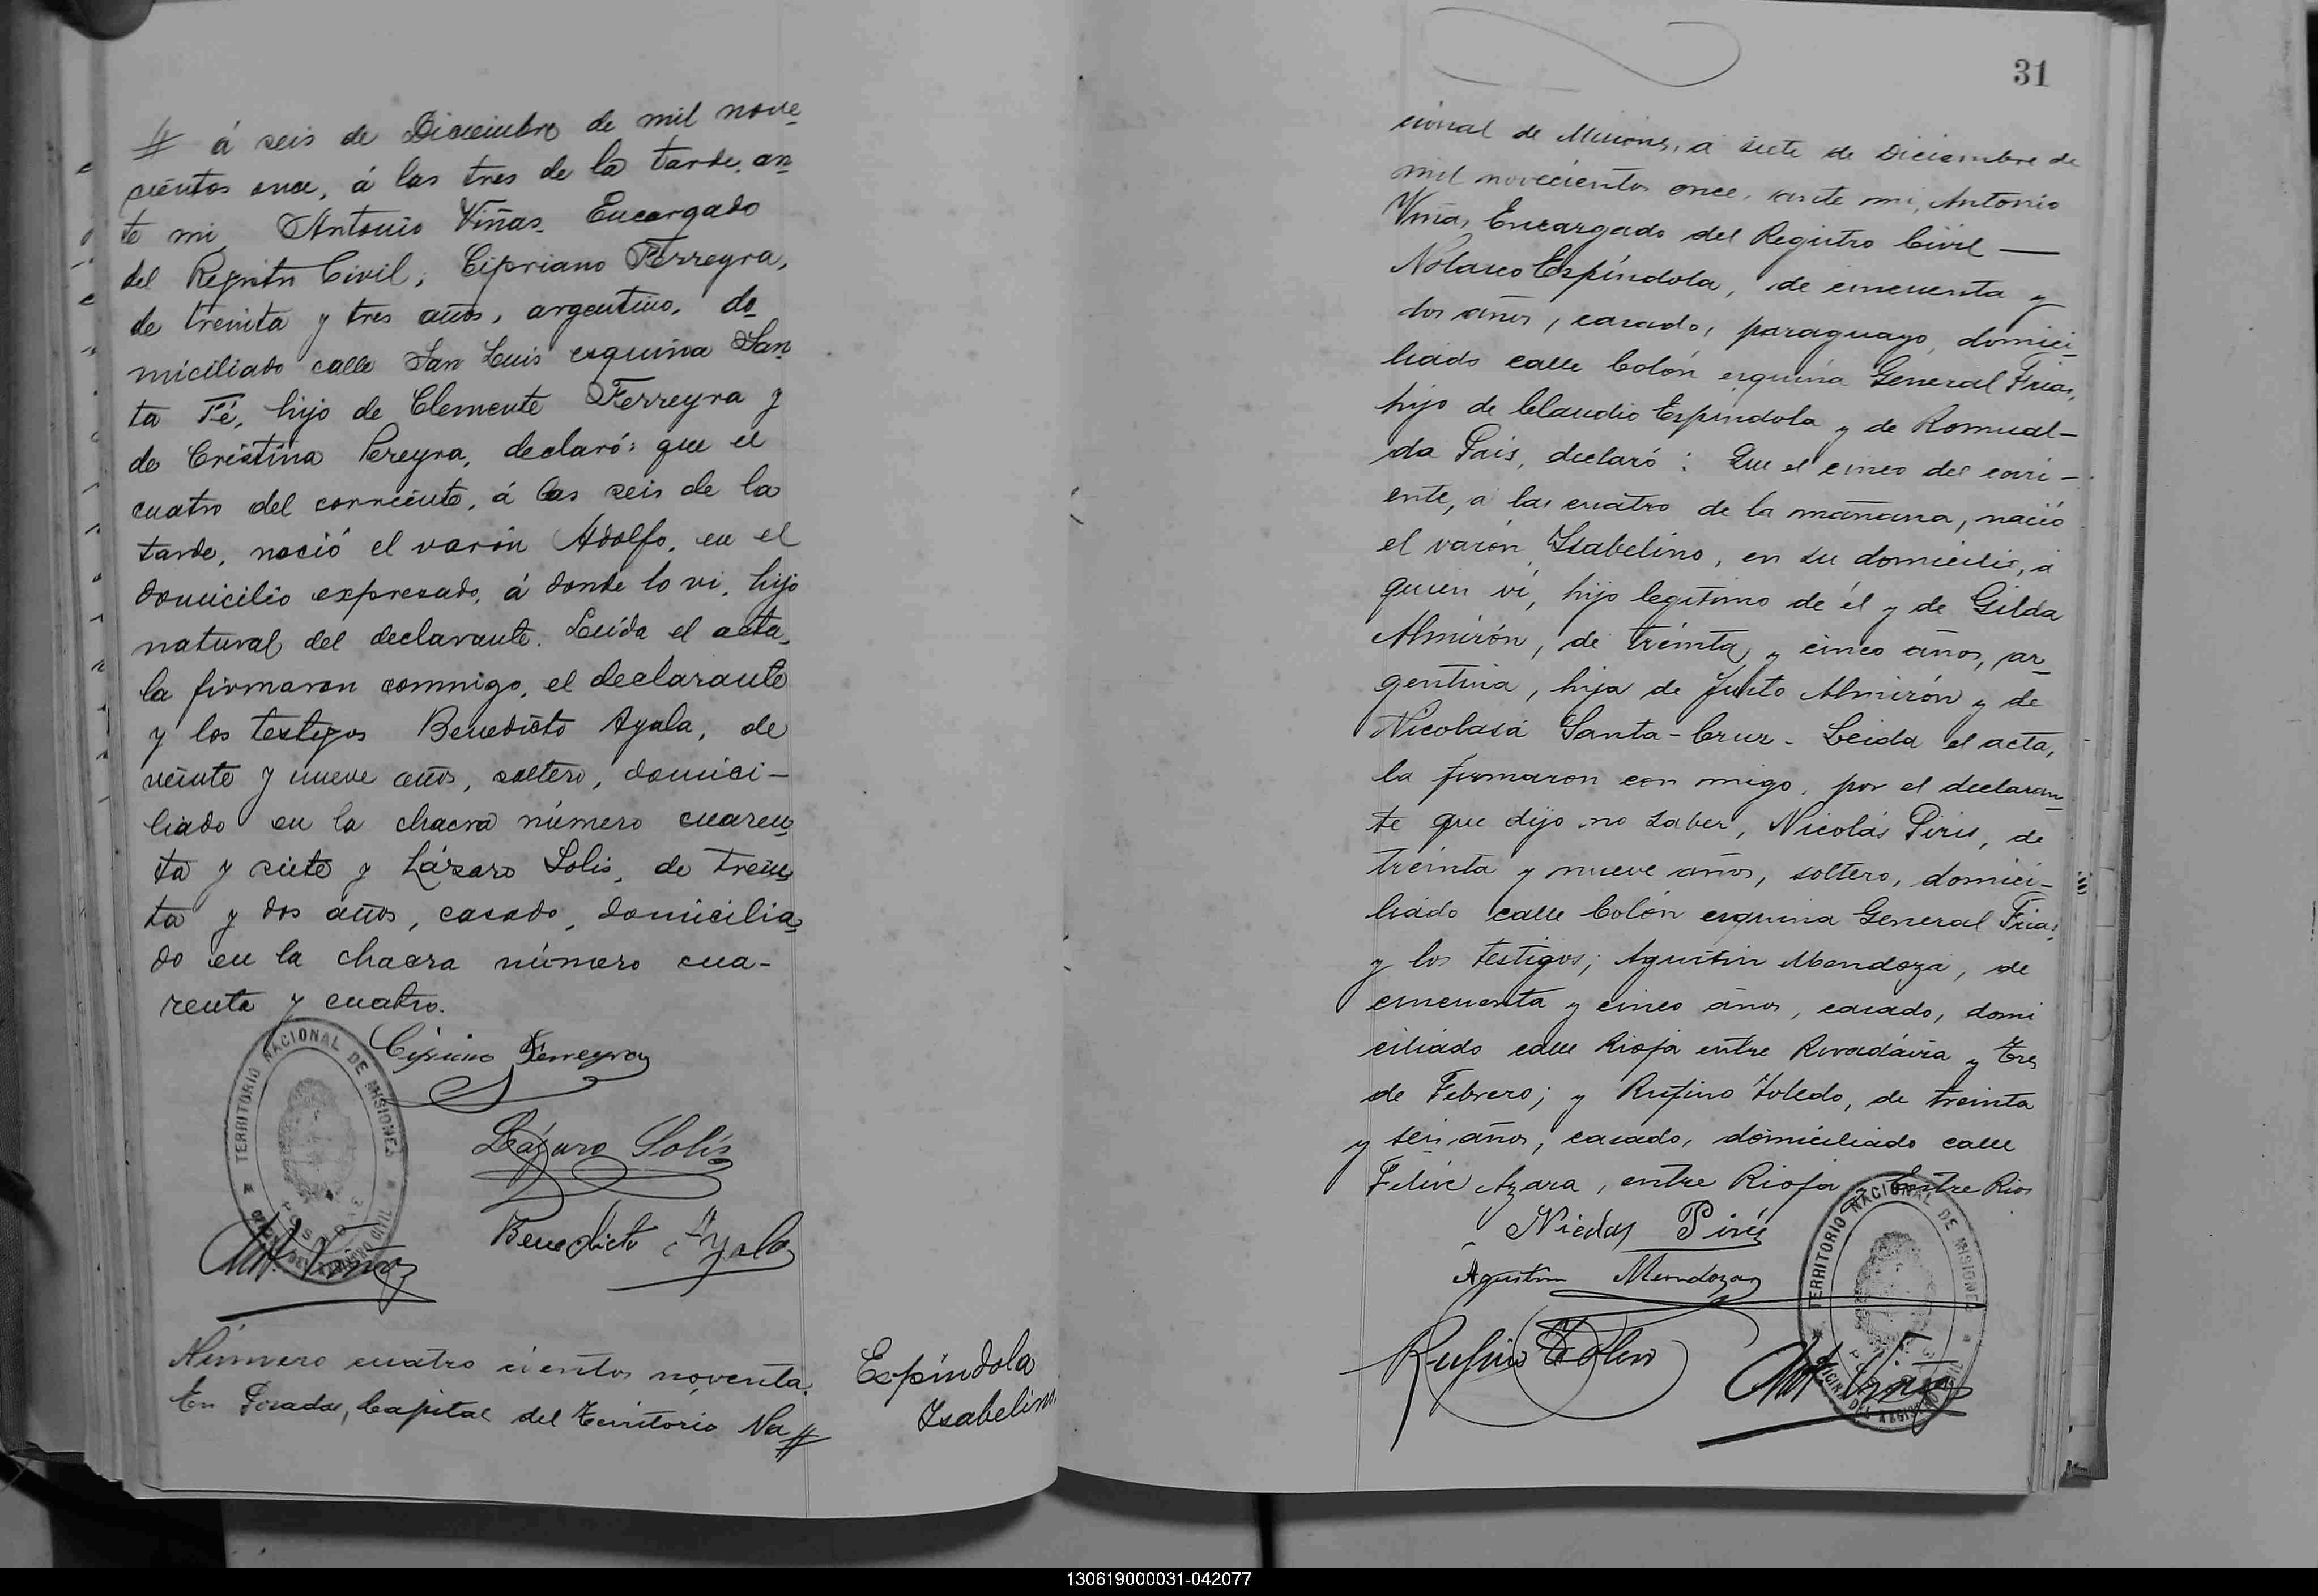 # á seis de Diciembre de mil nove-
cientos once, á las tres de la tarde, an-
te mi, Antonio Viñas, Encargado
del Registro Civil; Cipriano Ferreyra,
de treinta y tres años, argentino, do-
miciliado calle San Luis esquina San-
ta Fé, hijo de Clemente Ferreyra y
de Cristina Pereyra, declaró: que el
cuatro del corriente, á las seis de la
tarde, nació el varón Adolfo, en el
domicilio expresado, á donde lo vi, hijo
natural del declarante. Leida el acta,
la firmaron conmigo, el declarante
y los testigos Benedicto Ayala, de
veinte y nueve años, soltero, domici-
liado en la chacra número cuaren-
ta y siete y Lázaro Solis, de trein-
ta y dos años, casado, domicilia-
do en la chacra número cua-
renta y cuatro.
Cipriano Ferreyra
Lázaro Solís
Benedicto Ayala
Ant. Viñas
TERRITORIO NACIONAL DE MISIONES
POSADAS
Número cuatro cientos noventa.
En Posadas, Capital del Territorio Na#
Espíndola
Isabelino.
31
cional de Misiones, a siete de Diciembre de
mil novecientos once, ante mi, Antonio
Viñas, Encargado del Registro Civil —
Nolasco Espíndola, de cincuenta y
dos años, casado, paraguayo, domici-
liado calle Colón esquina General Frias,
hijo de Claudio Espíndola y de Romual-
da Pais, declaró: Que el cinco del corri-
ente, a las cuatro de la mañana, nació
el varón, Isabelino, en su domicilio, a
quien ví, hijo legítimo de él y de Gilda
Almirón, de treinta y cinco años, ar-
gentina, hija de Justo Almirón y de
Nicolasa Santa-Cruz. Leida el acta,
la firmaron con migo, por el declaran-
te que dijo no saber, Nicolás Piris, de
treinta y nueve años, soltero, domici-
liado calle Colón esquina General Frias,
y los testigos; Agustin Mendoza, de
cincuenta y cinco años, casado, domi
ciliado calle Rioja entre Rivadavia y Tres
de Febrero; y Rufino Toledo, de treinta
y seis años, casado, domiciliado calle
Felix Azara, entre Rioja y Entre Rios
Nicolas Piris
Agustin Mendoza
Rufino Toledo
Ant. Viñas
TERRITORIO NACIONAL DE MISIONES
OFICINA DEL REGISTRO CIVIL
130619000031-042077